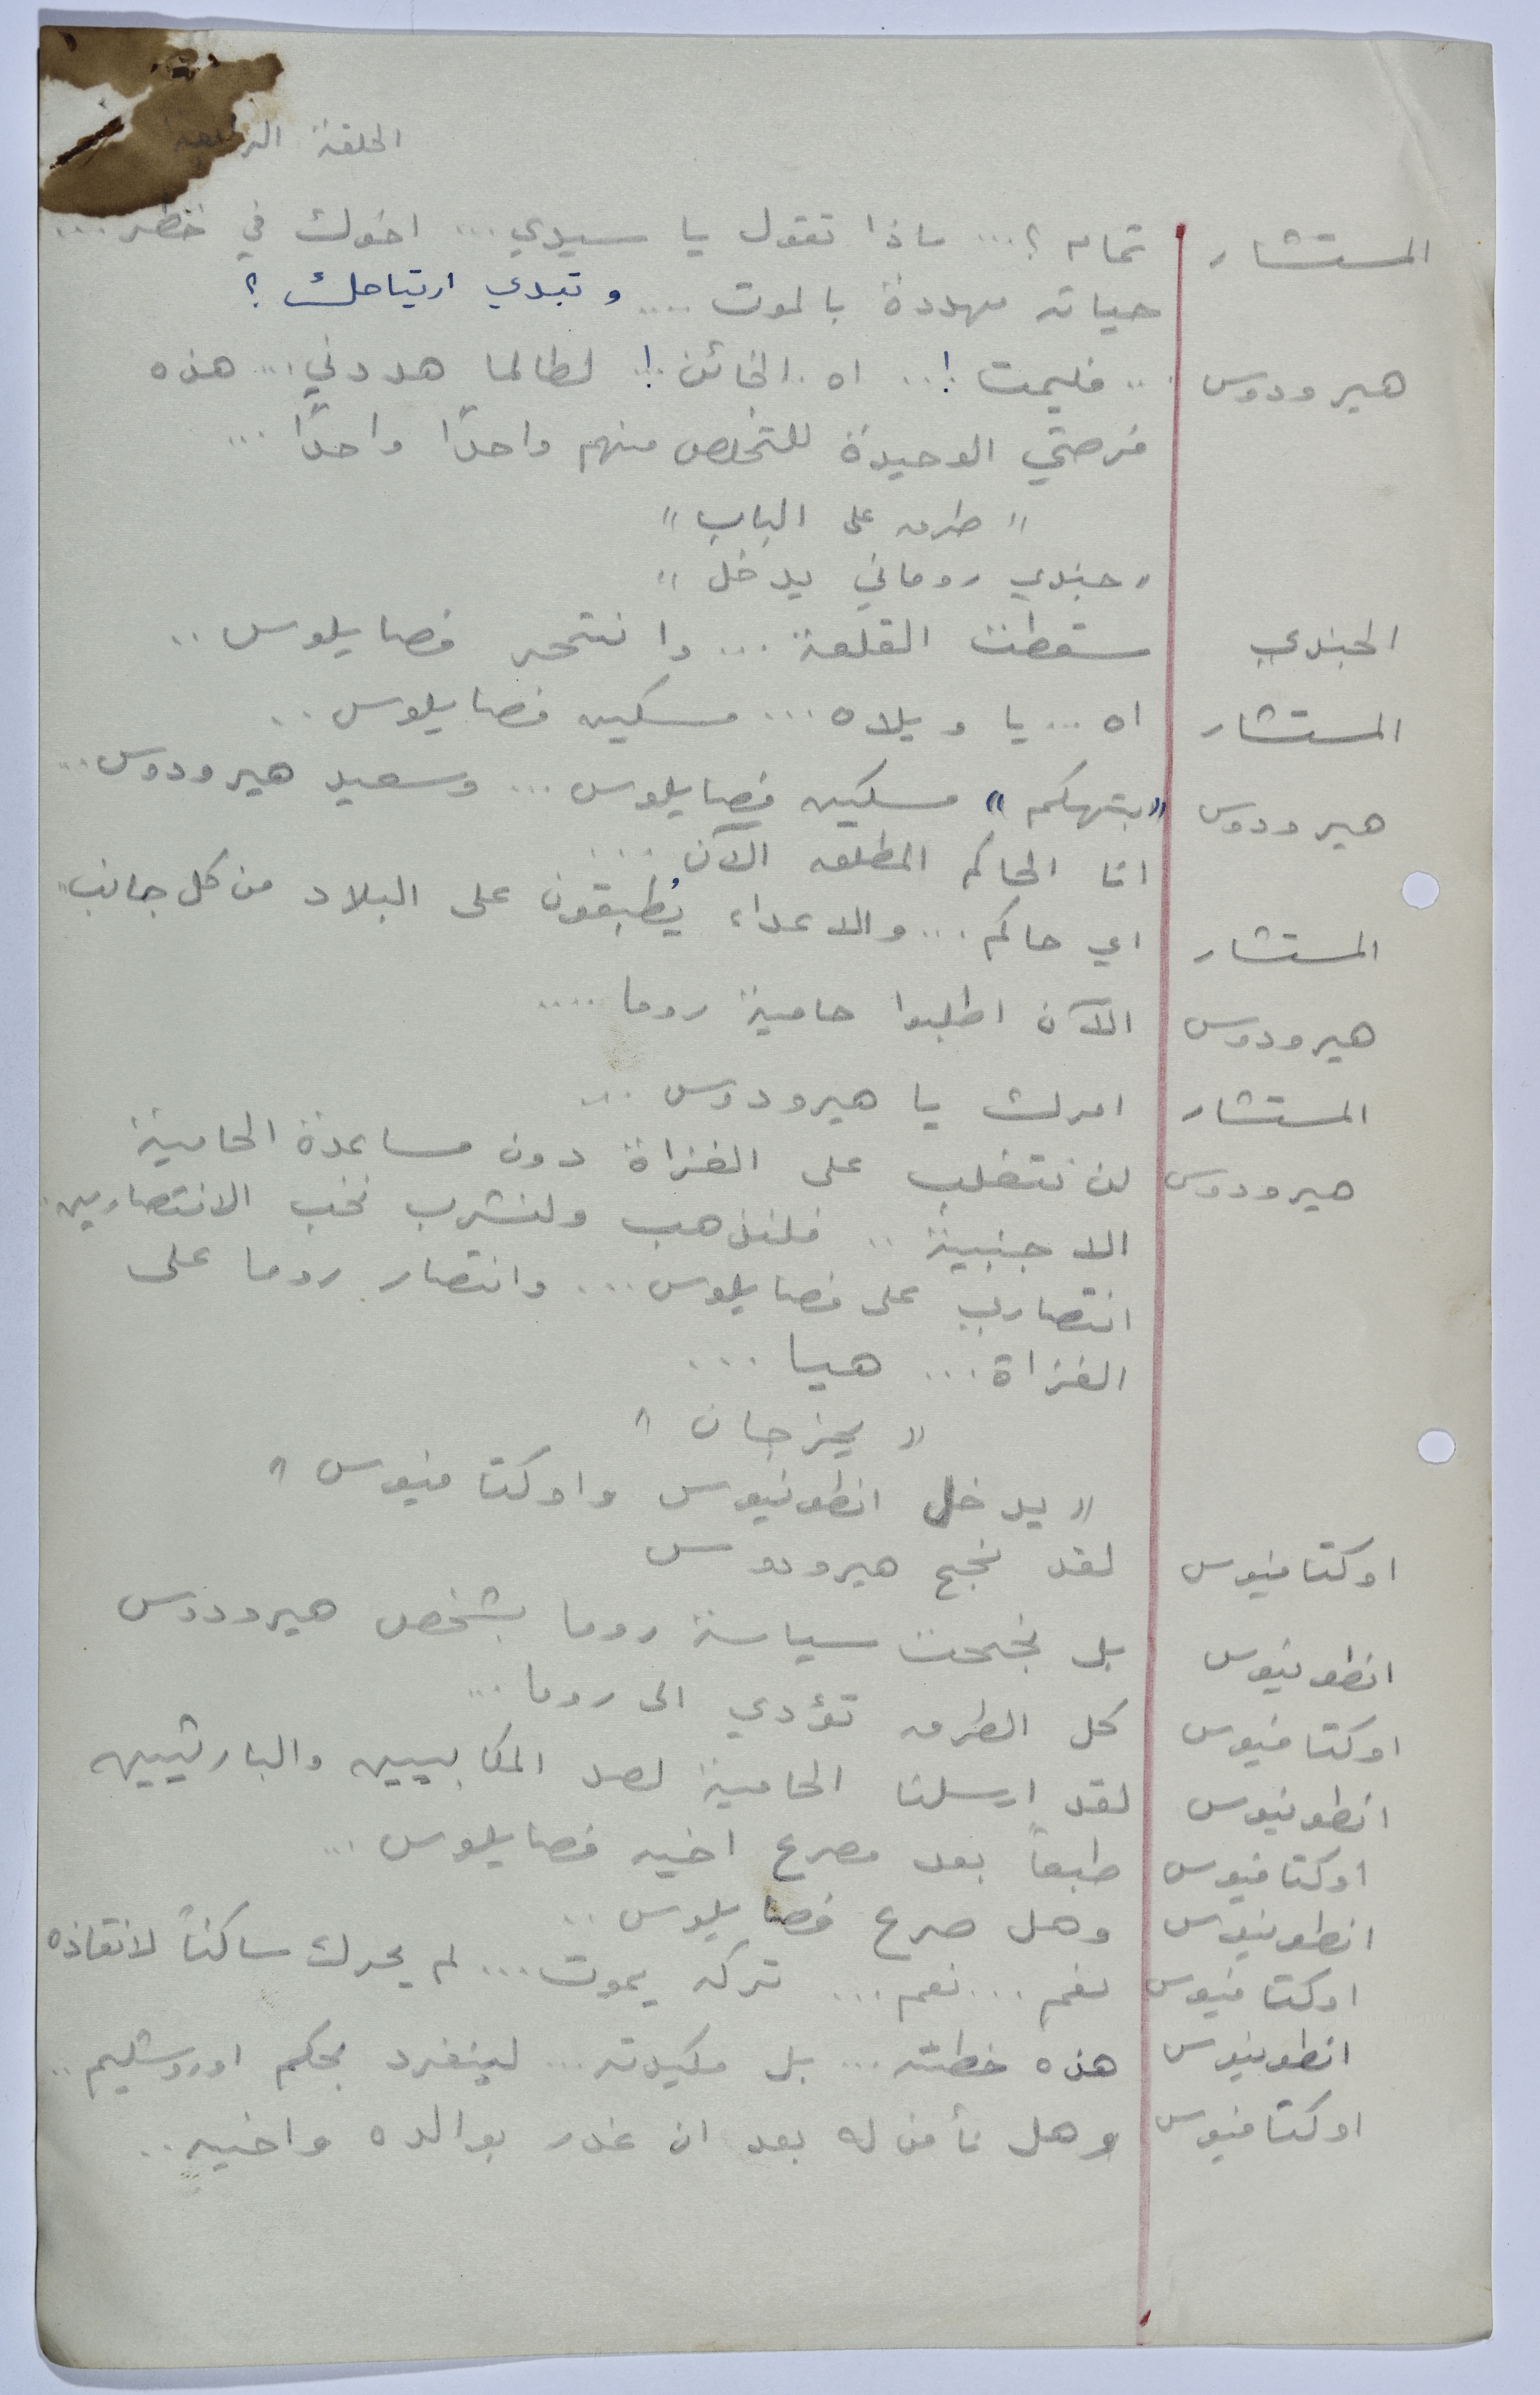 الحلقة الرابعة
المستشار تمام ؟... ماذا تقول يا سيدي ... اخوك في خطر ....
حياته مهددة بالموت .... وتبدي ارتياحك ؟
هيرودوس ... فليمت !.. اه .. الخائن !.. لطالما هددني ... هذه
فرصتي الوحيدة للتخلص منهم واحدًا واحدًا ...
" طرق على الباب "
" جندي روماني يدخل "
الجندي سقطت القلعة ... وانتحر فصايلوس ..
المستشار اه ... يا ويلاه ... مسكين فصايلوس ..
هيرودوس "بتهكم" مسكين فصايلوس ... وسعيد هيرودوس ...
انا الحاكم المطلق الآن ...
المستشار اي حاكم ... والاعداء يُطبقون على البلاد من كل جانب ..
هيرودوس الآن اطلبوا حامية روما ....
المستشار امرك يا هيرودوس ...
هيرودوس لن نتغلب على الغزاة دون مساعدة الحامية
الاجنبية .. فلنذهب ولنشرب نخب الانتصارين.
انتصاري على فصايلوس ... وانتصار روما على
الغزاة ... هيا ...
" يخرجان "
" يدخل انطونيوس واوكتافيوس "
اوكتافيوس لقد نجح هيرودوس
انطونيوس بل نجحت سياسة روما بشخص هيرودوس
اوكتافيوس كل الطرق تؤدي الى روما ...
انطونيوس لقد ارسلنا الحامية لصد المكابيين والبارثيين
اوكتافيوس طبعاً بعد مصرع اخيه فصايلوس ...
انطونيوس وهل صرع فصايلوس ..
اوكتافيوس نعم ... نعم ... تركه يموت ... لم يحرك ساكناً لانقاذه
انطونيوس هذه خطته ... بل مكيدته ... لينفرد بحكم اوروشليم ..
اوكتافيوس وهل نأمن له بعد ان غدر بوالده واخيه ..